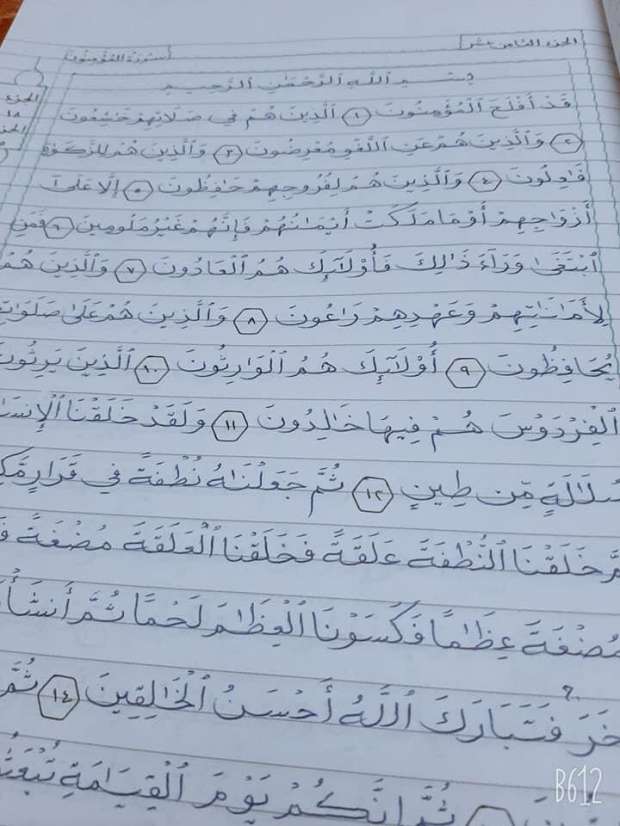 الجزء الثامن عشر
سورة المؤمنون
بسم الله الرحمن الرحيم
قَدْ أَفْلَحَ ٱلْمُؤْمِنُونَ ١ ٱلَّذِينَ هُمْ فِي صَلَاتِهِمْ خَٰشِعُونَ
٢ وَٱلَّذِينَ هُمْ عَنِ ٱللَّغْوِ مُعْرِضُونَ ٣ وَٱلَّذِينَ هُمْ لِلزَّكَوٰةِ
فَٰعِلُونَ ٤ وَٱلَّذِينَ هُمْ لِفُرُوجِهِمْ حَٰفِظُونَ ٥ إِلَّا عَلَىٰٓ
أَزْوَٰجِهِمْ أَوْ مَا مَلَكَتْ أَيْمَٰنُهُمْ فَإِنَّهُمْ غَيْرُ مَلُومِينَ ٦ فَمَنِ
ٱبْتَغَىٰ وَرَآءَ ذَٰلِكَ فَأُو۟لَٰٓئِكَ هُمُ ٱلْعَادُونَ ٧ وَٱلَّذِينَ هُمْ
لِأَمَٰنَٰتِهِمْ وَعَهْدِهِمْ رَٰعُونَ ٨ وَٱلَّذِينَ هُمْ عَلَىٰ
يُحَافِظُونَ ٩ أُو۟لَٰٓئِكَ هُمُ ٱلْوَٰرِثُونَ ١٠ ٱلَّذِينَ يَرِثُونَ
ٱلْفِرْدَوْسَ هُمْ فِيهَا خَٰلِدُونَ ١١ وَلَقَدْ خَلَقْنَا
سُلَٰلَةٍ مِّن طِينٍ ١٢ ثُمَّ جَعَلْنَٰهُ نُطْفَةً فِي قَرَارٍ
خَلَقْنَا ٱلنُّطْفَةَ عَلَقَةً فَخَلَقْنَا ٱلْعَلَقَةَ مُضْغَةً
عِظَٰمًا فَكَسَوْنَا ٱلْعِظَٰمَ لَحْمًا ثُمَّ
فَتَبَارَكَ ٱللَّهُ أَحْسَنُ ٱلْخَٰلِقِينَ ١٤ ثُمَّ
ثُمَّ إِنَّكُمْ يَوْمَ ٱلْقِيَٰمَةِ
B612